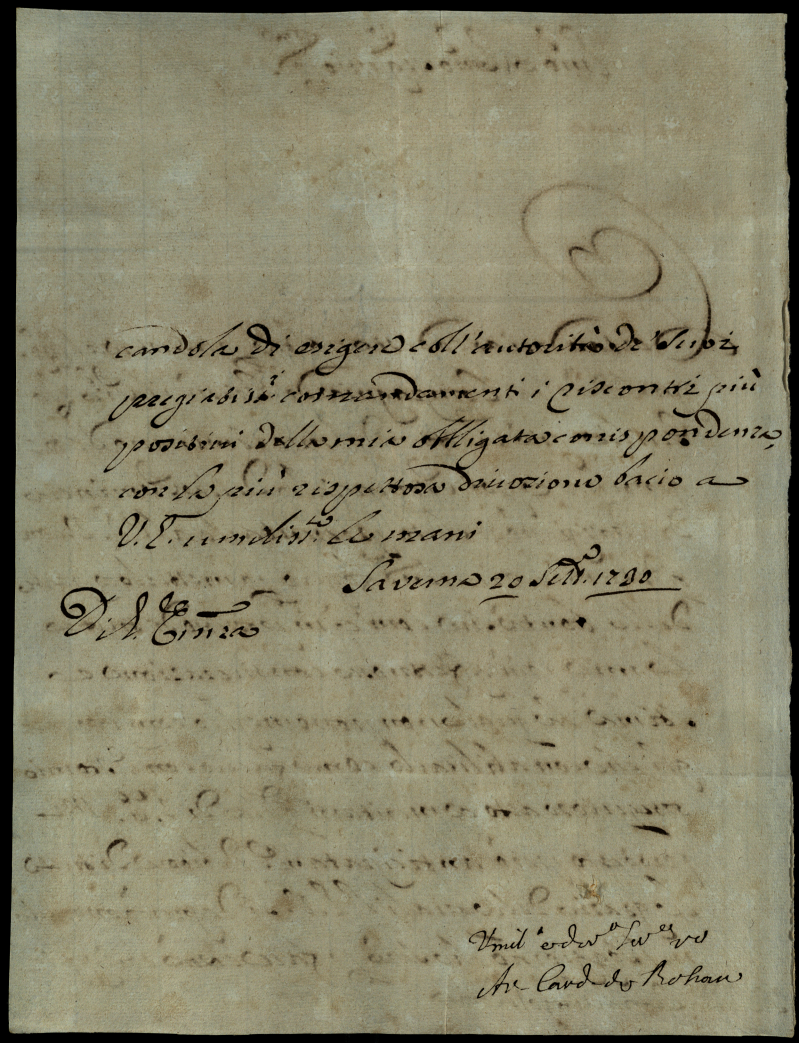 candola di esigere coll'autorità de Suoi
pregiabiss.i comandamenti i riscontri più
positivi della mia obbligata corrispondenza,
con la più rispettosa divozione bacio a
V. E. umiliss.te le mani
Saverna 20 Sett.e 1780
D. V. Em̃za
Umil.o e devo.o Ser.re vo
Ar Card de Rohan